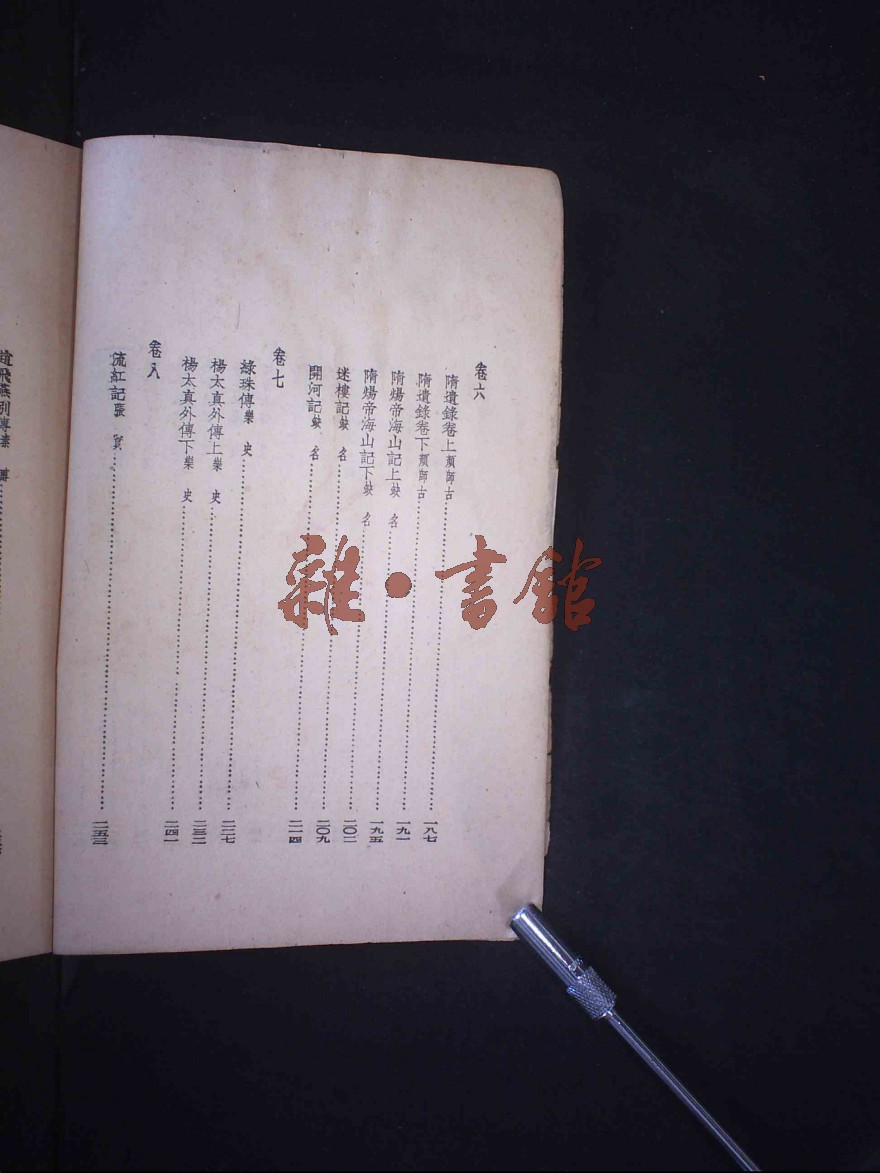 卷六
隋遺錄卷上 顏師古……一八七
隋遺錄卷下 顏師古……一九一
隋煬帝海山記上 缺 名……一九五
隋煬帝海山記下 缺 名……二〇二
迷樓記 缺 名……二〇九
開河記 缺 名……二一四
卷七
綠珠傳 樂 史……二二七
楊太真外傳上 樂 史……二三二
楊太真外傳下 樂 史……二四一
卷八
流紅記 張 實……二五三
趙飛燕別傳 秦 醇……
雜·書館